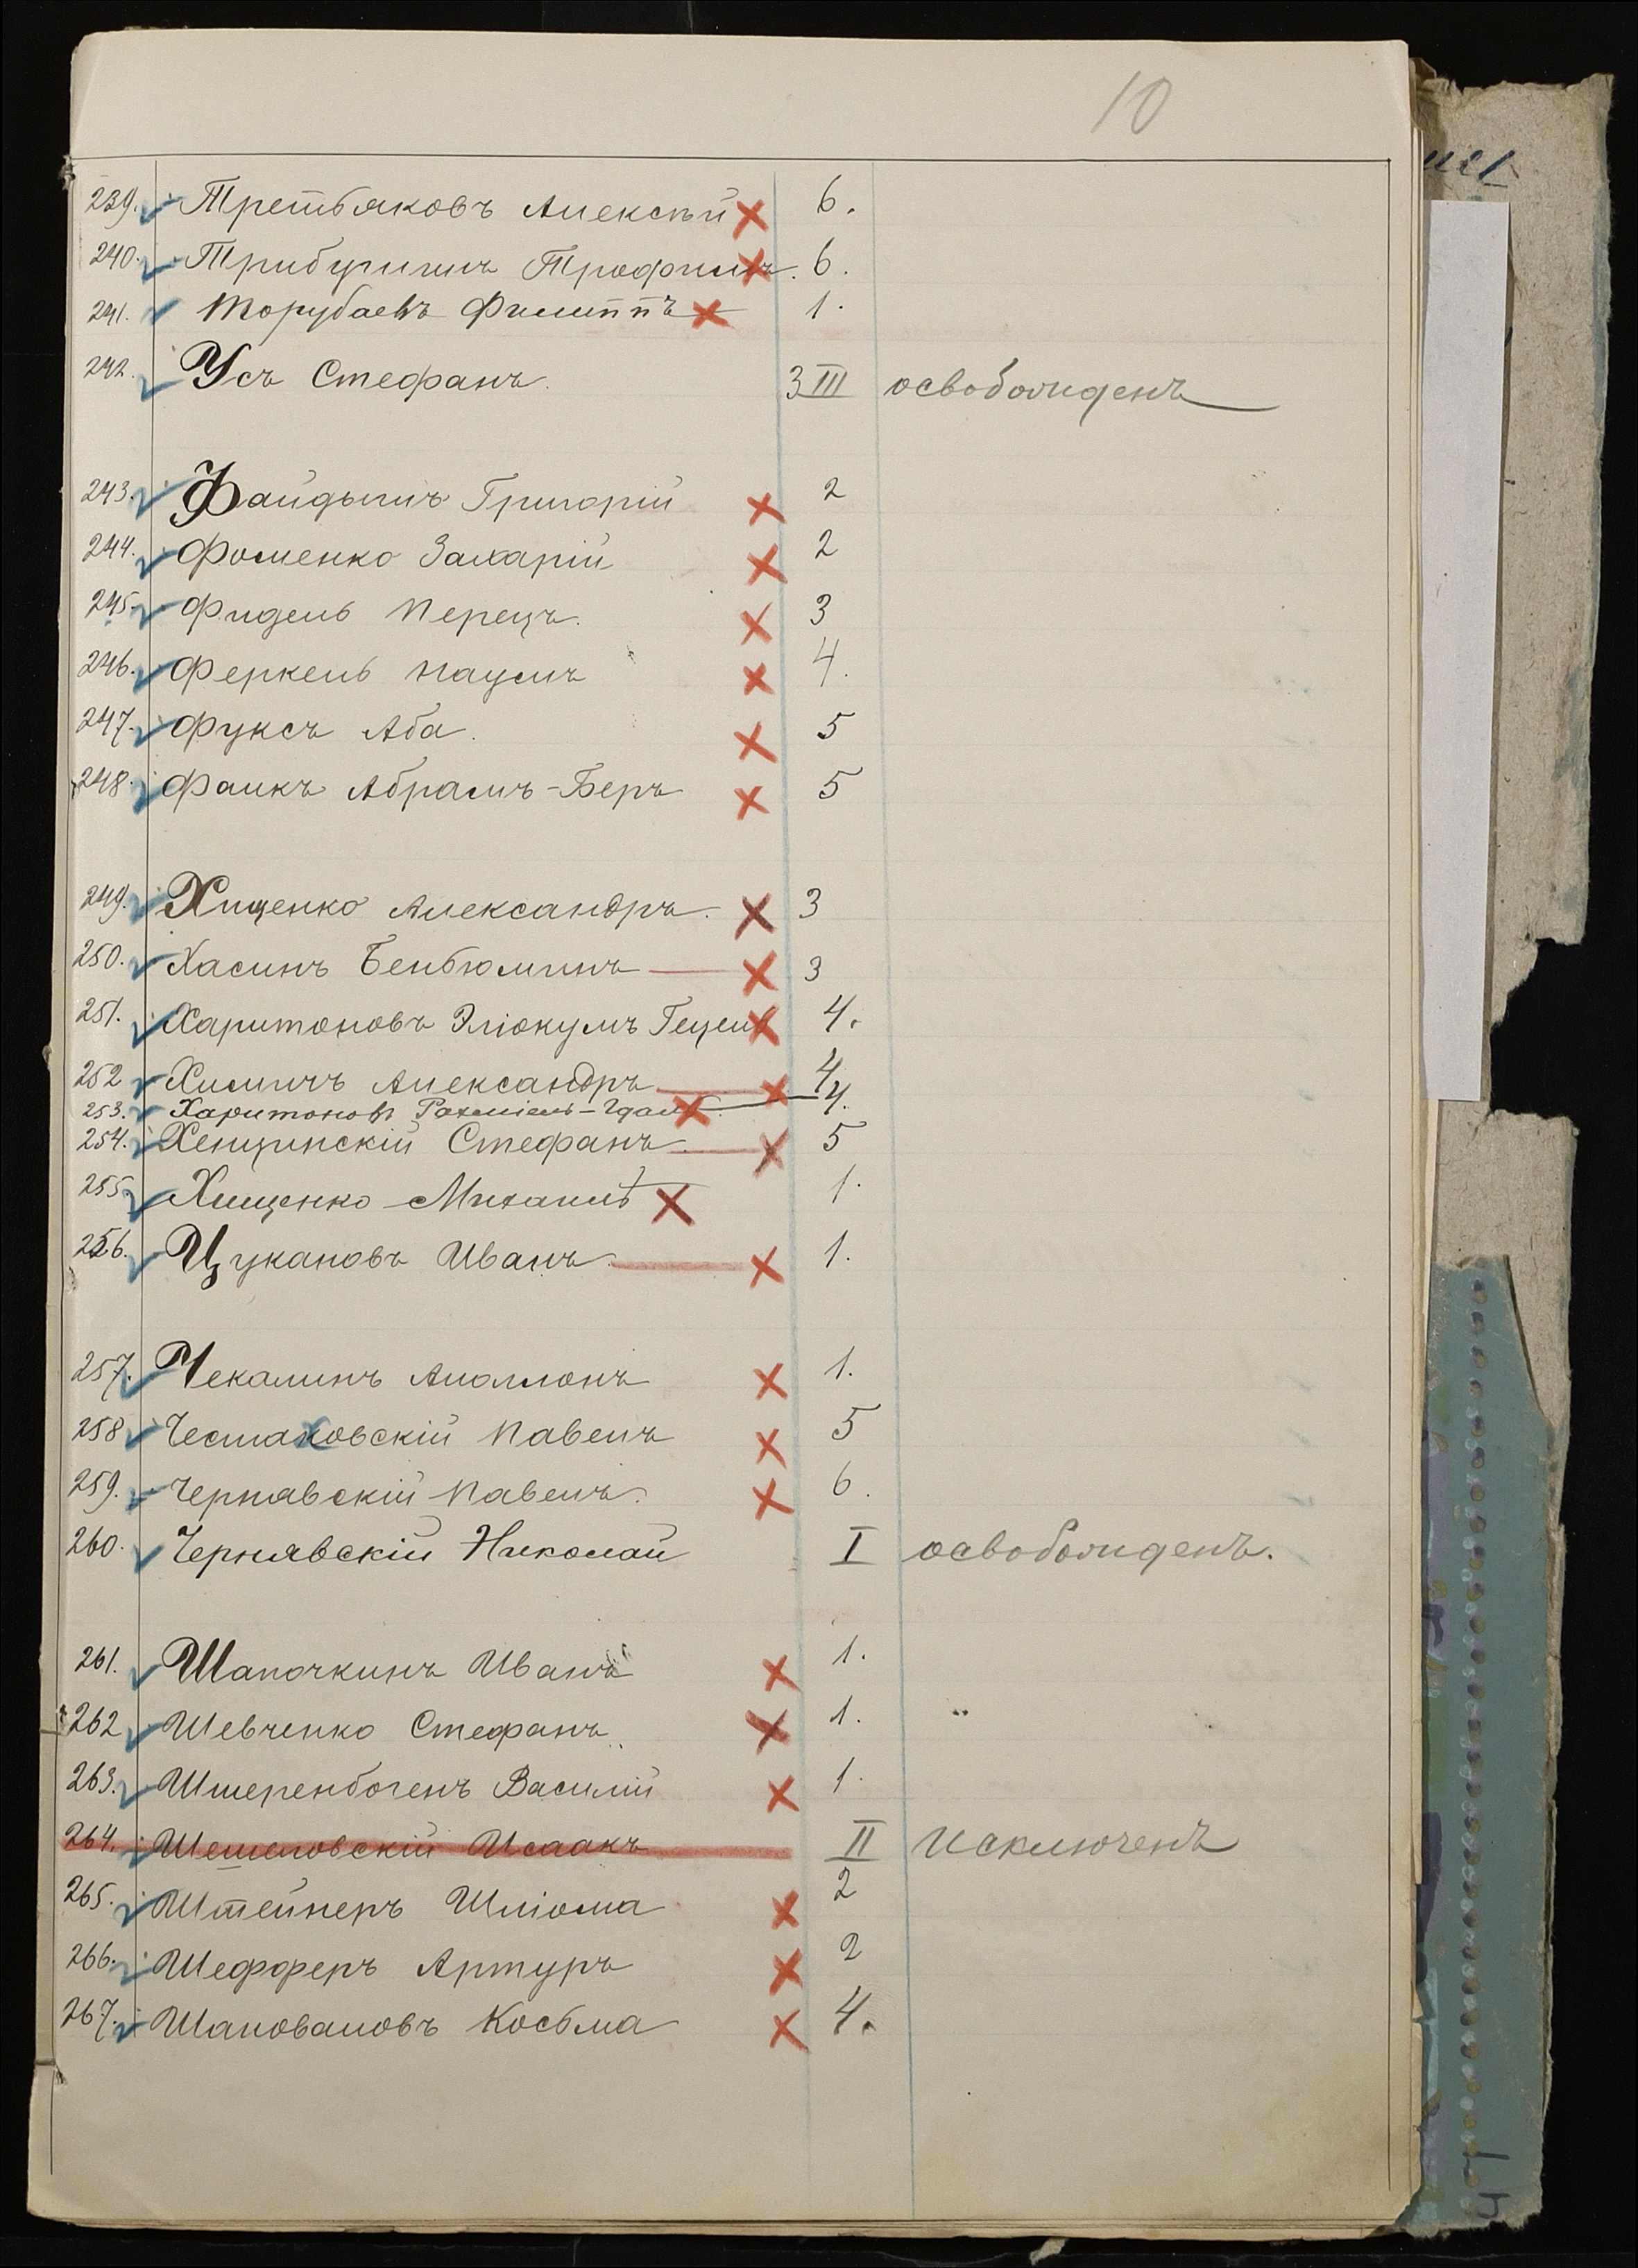 10
239. Третьяковъ Алексѣй 6.
240. Трибушинъ Трофимъ. 6.
241. Торубаевъ Филиппъ 1.
242. Усъ Стефанъ. 3 III освобожденъ
243. Файдышъ Григорій 2
244. Фоменко Захарій 2
245. Фидель Перецъ. 3
246. Феркель Наумъ 4.
247. Фуксъ Аба. 5
248. Фалкъ Абрамъ-Беръ 5
249. Хиценко Александръ. 3
250. Хасинъ Беньюминъ 3
251. Харитоновъ Эліокумъ Гецель 4.
252 Химичъ Александръ 4
253. Харитоновъ Рахміель-Идалъ 4.
254. Хенцинскій Стефанъ 5
255. Хищенко Михаилъ 1.
256. Цукановъ Иванъ. 1.
257. Чекалинъ Аполлонъ 1.
258 Честаховскій Павелъ 5
259. Чернявскій Павелъ. 6.
260. Чернявскій Николай I освобожденъ.
261. Шапочкинъ Иванъ 1.
262 Шевченко Стефанъ 1.
263. Штеренбогенъ Василій 1.
264. Шешеловскій Исаакъ II исключенъ
265. Штейнеръ Шліома 2
266. Шефферъ Артуръ 2
267. Шаповаловъ Косьма 4.